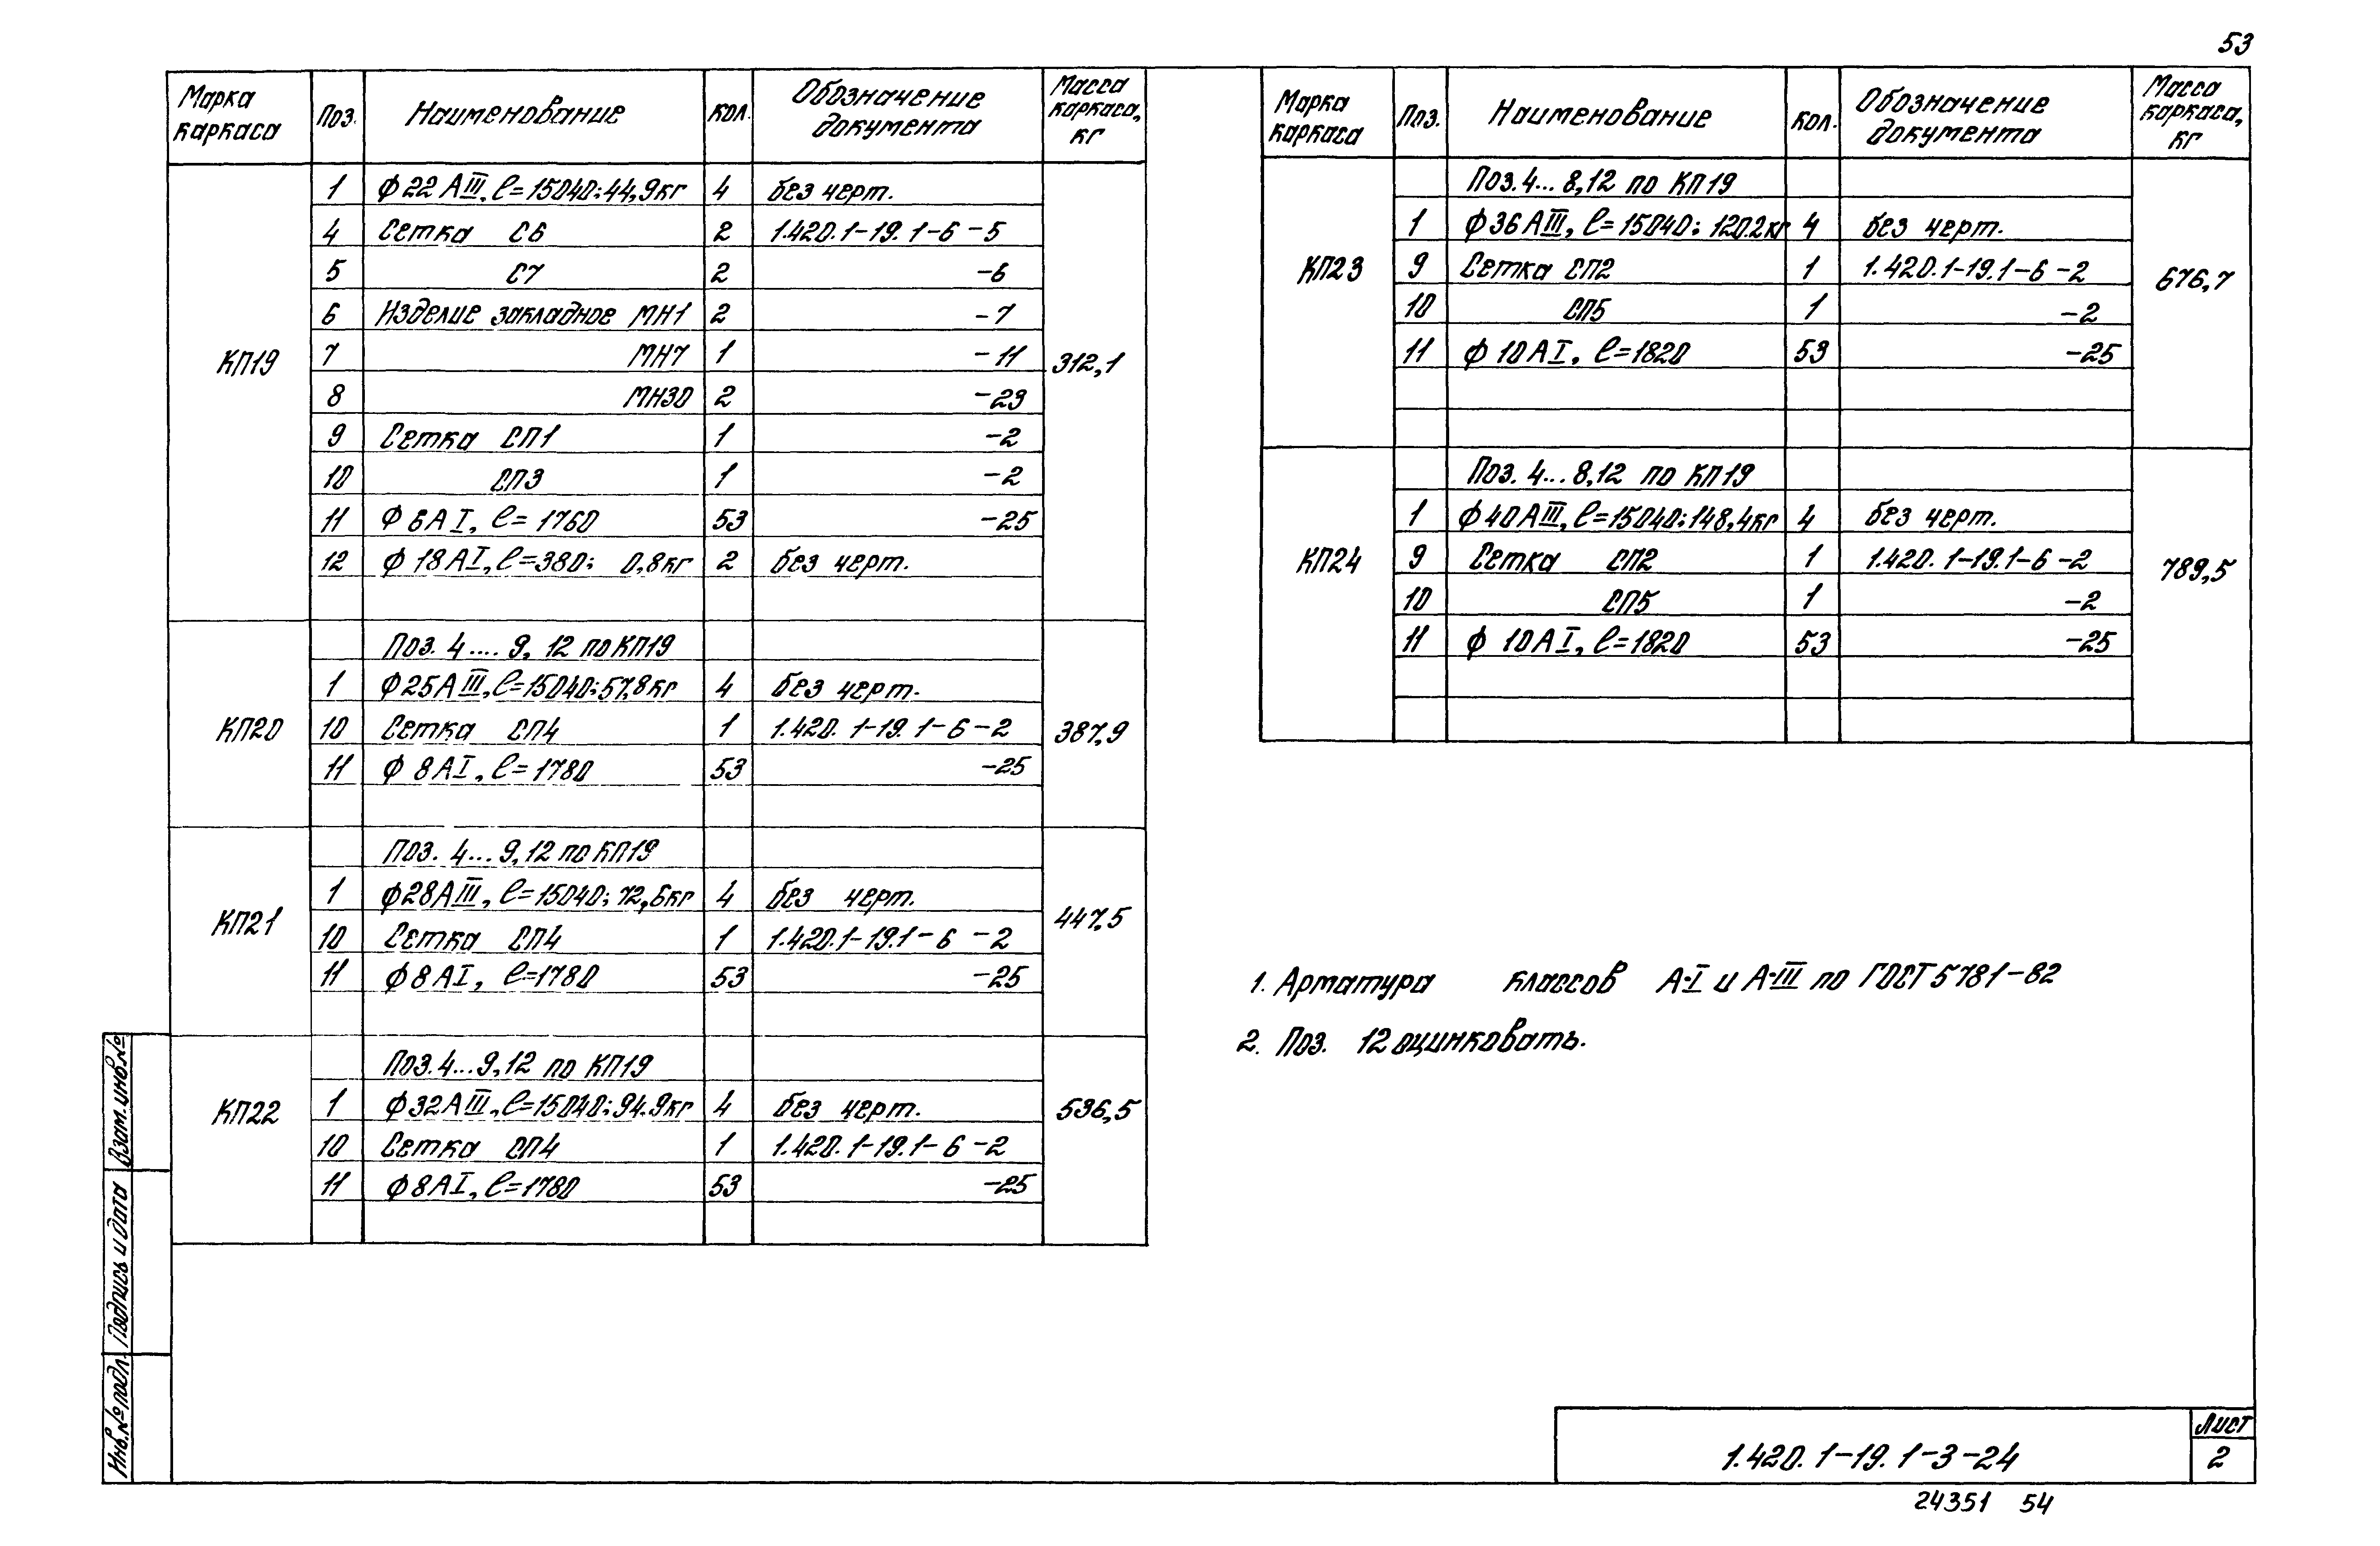 53
Марка каркаса Поз. Наименование кол. Обозначение документа Масса каркаса, кг
КП19 312,1
1 ф22АIII, ℓ=15040; 44,9кг 4 без черт.
4 Сетка С6 2 1.420.1-19.1-6-5
5 С7 2 -6
6 Изделие закладное МН1 2 -7
7 МН7 1 -11
8 МН30 2 -29
9 Сетка СП1 1 -2
10 СП3 1 -2
11 ф6АI, ℓ=1760 53 -25
12 ф18АI, ℓ=380; 0,8кг 2 без черт.
КП20 387,9
Поз. 4....9, 12 по КП19
1 ф25АIII, ℓ=15040; 57,8кг 4 без черт.
10 Сетка СП4 1 1.420.1-19.1-6-2
11 ф8АI, ℓ=1780 53 -25
КП21 447,5
Поз. 4...9,12 по КП19
1 ф28АIII, ℓ=15040; 72,6кг 4 без черт.
10 Сетка СП4 1 1.420.1-19.1-6-2
11 ф8АI, ℓ=1780 53 -25
КП22 536,5
Поз.4...9,12 по КП19
1 ф32АIII, ℓ=15040; 94.9кг 4 без черт.
10 Сетка СП4 1 1.420.1-19.1-6-2
11 ф8АI, ℓ=1780 53 -25
Марка каркаса Поз. Наименование кол. Обозначение документа Масса каркаса, кг
КП23 676,7
Поз.4...8,12 по КП19
1 ф36АIII, ℓ=15040; 120.2кг 4 без черт.
9 Сетка СП2 1 1.420.1-19.1-6-2
10 СП5 1 -2
11 ф10АI, ℓ=1820 53 -25
КП24 789,5
Поз. 4...8,12 по КП19
1 ф40АIII, ℓ=15040; 148,4кг 4 без черт.
9 Сетка СП2 1 1.420.1-19.1-6-2
10 СП5 1 -2
11 ф10АI, ℓ=1820 53 -25
1. Арматура классов А-I и А-III по ГОСТ 5781-82
2. Поз. 12 оцинковать.
Взам.инв.№
Подпись и дата
Инв.№ подл.
1.420.1-19.1-3-24
Лист
2
24351 54